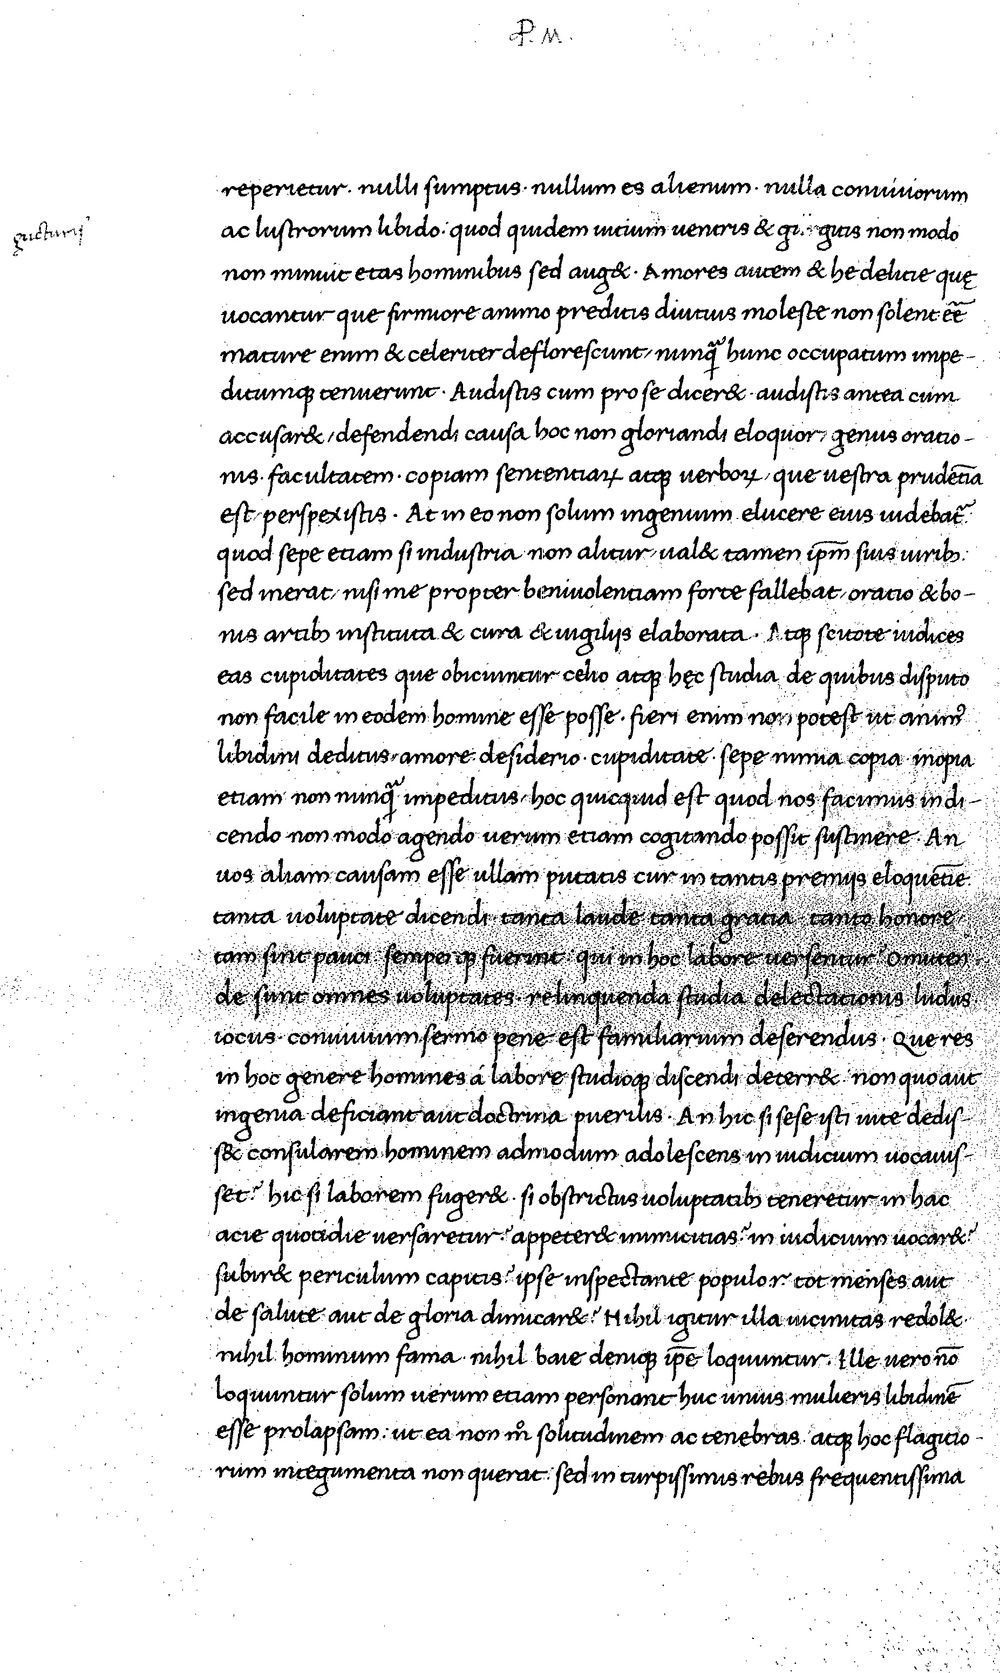 P. M.
reperietur. nulli sumptus. nullum es alienum. nulla conviviorum
gucturis
ac lustrorum libido: quod quidem vitium ventris & non modo
non minuit etas hominibus sed aug&. Amores autem & he delitie quę
vocantur que firmiore animo preditis diutius moleste non solent eē
mature enim & celeriter deflorescunt, nunqā hunc occupatum impe-
ditumqꝫ tenuerunt. Audistis cum pro se dicer&. audistis antea cum
accusar&, defendendi causa hoc non gloriandi eloquor, genus oratio-
nis. facultatem. copiam sententiaꝝ atqꝫ verboꝝ, que vestra prudētia
est, perspexistis. At in eo non solum ingenium elucere eius videbat᷑
quod sepe etiam si industria non alitur, val& tamen ip̄m suis virib;
sed inerat, nisi me propter benivolentiam forte fallebat, oratio & bo-
nis artib; instituta & cura & vigilijs elaborata. Atqꝫ scitote iudices
eas cupiditates que obiciuntur celio atqꝫ hęc studia de quibus disputo
non facile in eodem homine esse posse. fieri enim non potest ut animꝰ
libidini deditus, amore. desiderio. cupiditate. sepe nimia copia. inopia
etiam non nunqā impeditus, hoc quicquid est quod nos facimus in di-
cendo non modo agendo verum etiam cogitando possit sustinere. An
vos aliam causam esse ullam putatis cur in tantis premijs eloquētie.
tanta voluptate dicendi. tanta laude tanta gratia. tanto honore,
tam sint pauci semperqꝫ fuerint. qui in hoc labore versentur? Omitten
de sunt omnes voluptates. relinquenda studia delectationis ludus
iocus. convivium sermo pene est familiarium deserendus. Que res
in hoc genere homines á labore studioqꝫ discendi deterr&. non quo aut
ingenia deficiant aut doctrina puerilis. An hic si sese isti vite dedis-
s& consularem hominem admodum adolescens in iudicium vocavis-
set? hic si laborem fuger&. si obstrictus voluptatib; teneretur in hac
acie quotidie versaretur? appeter& inimicitias? in iudicium vocar&?
subir& periculum capitis? ipse inspectante populo r. tot menses aut
de salute aut de gloria dimicar&? Nihil igitur illa vicinitas redol&.
nihil hominum fama. nihil baie deniqꝫ ip̄e loquuntur. Ille vero nō
loquuntur solum verum etiam personant huc unius mulieris libidinē
esse prolapsam: ut ea non mͦ solitudinem ac tenebras. atqꝫ hoc flagitio-
rum integumenta non querat. sed in turpissimis rebus frequentissima